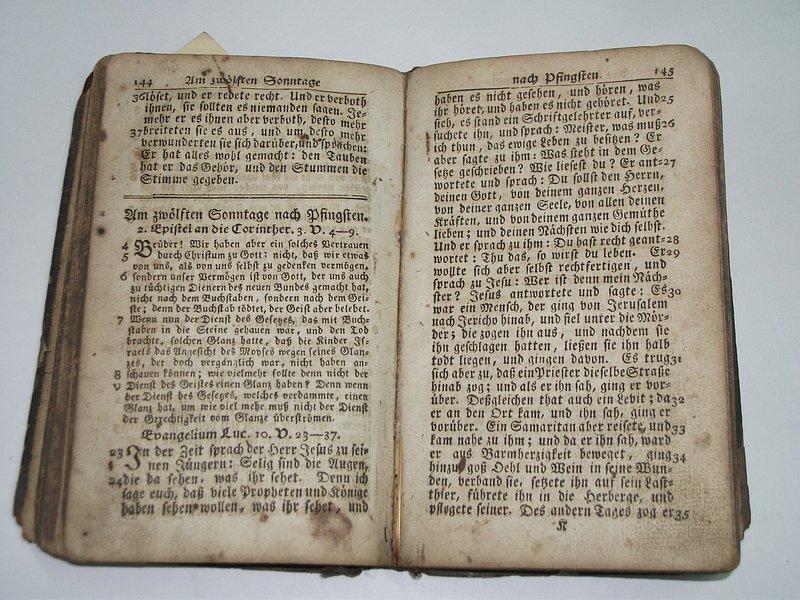 144 Am zwölften Sonntage
36 löset, und er redete recht. Und er verboth
ihnen, sie sollten es niemanden sagen. Je-
mehr er es ihnen aber verboth, desto mehr
37 breiteten sie es aus, und um desto mehr
verwunderten sie sich darüber, und sprachen:
Er hat alles wohl gemacht: den Tauben
hat er das Gehör, und den Stummen die
Stimme gegeben.
Am zwölften Sonntage nach Pfingsten.
2. Epistel an die Corinther. 3. V. 4—9.
4 Brüder! Wir haben aber ein solches Vertrauen
5 durch Christum zu Gott: nicht, daß wir etwas
von uns, als von uns selbst zu gedenken vermögen,
6 sondern unser Vermögen ist von Gott, der uns auch
zu tüchtigen Dienern des neuen Bundes gemacht hat,
nicht nach dem Buchstaben, sondern nach dem Gei-
ste; denn der Buchstab tödtet, der Geist aber belebet.
7 Wenn nun der Dienst des Gesetzes, das mit Buch-
staben in die Steine gehauen war, und den Tod
brachte, solchen Glanz hatte, daß die Kinder Js-
raels das Angesicht des Moyses wegen seines Glan-
zes, der doch vergänglich war, nicht haben an-
8 schauen können; wie vielmehr sollte denn nicht der
9 Dienst des Geistes einen Glanz haben? Denn wenn
der Dienst des Gesetzes, welches verdammte, einen
Glanz hat, um wie viel mehr muß nicht der Dienst
der Gerechtigkeit vom Glanze überströmen.
Evangelium Luc. 10. V. 23—37.
23 Jn der Zeit sprach der Herr Jesus zu sei-
nen Jüngern: Selig sind die Augen,
24 die da sehen, was ihr sehet. Denn ich
sage euch, daß viele Propheten und Könige
haben sehen wollen, was ihr sehet, und
nach Pfingsten. 145
haben es nicht gesehen, und hören, was
ihr höret, und haben es nicht gehöret. Und 25
sieh, es stand ein Schriftgelehrter auf, ver-
suchete ihn, und sprach: Meister, was muß 26
ich thun, das ewige Leben zu besitzen? Er
aber sagte zu ihm: Was steht in dem Ge-
setze geschrieben? Wie liesest du? Er ant- 27
wortete und sprach: Du sollst den Herrn,
deinen Gott, von deinem ganzen Herzen,
von deiner ganzen Seele, von allen deinen
Kräften, und von deinem ganzen Gemüthe
lieben; und deinen Nächsten wie dich selbst.
Und er sprach zu ihm: Du hast recht geant- 28
wortet: Thu das, so wirst du leben. Er 29
wollte sich aber selbst rechtfertigen, und
sprach zu Jesu: Wer ist denn mein Näch-
ster? Jesus antwortete und sagte: Es 30
war ein Mensch, der ging von Jerusalem
nach Jericho hinab, und fiel unter die Mör-
der; die zogen ihn aus, und nachdem sie
ihn geschlagen hatten, ließen sie ihn halb
todt liegen, und gingen davon. Es trug 31
sich aber zu, daß ein Priester dieselbe Straße
hinab zog; und als er ihn sah, ging er vor-
über. Deßgleichen that auch ein Levit; da 32
er an den Ort kam, und ihn sah, ging er
vorüber. Ein Samaritan aber reisete, und 33
kam nahe zu ihm; und da er ihn sah, ward
er aus Barmherzigkeit beweget, ging 34
hinzu, goß Oehl und Wein in seine Wun-
den, verband sie, setzete ihn auf sein Last-
thier, führete ihn in die Herberge, und
pflegete seiner. Des andern Tages zog er 35
K